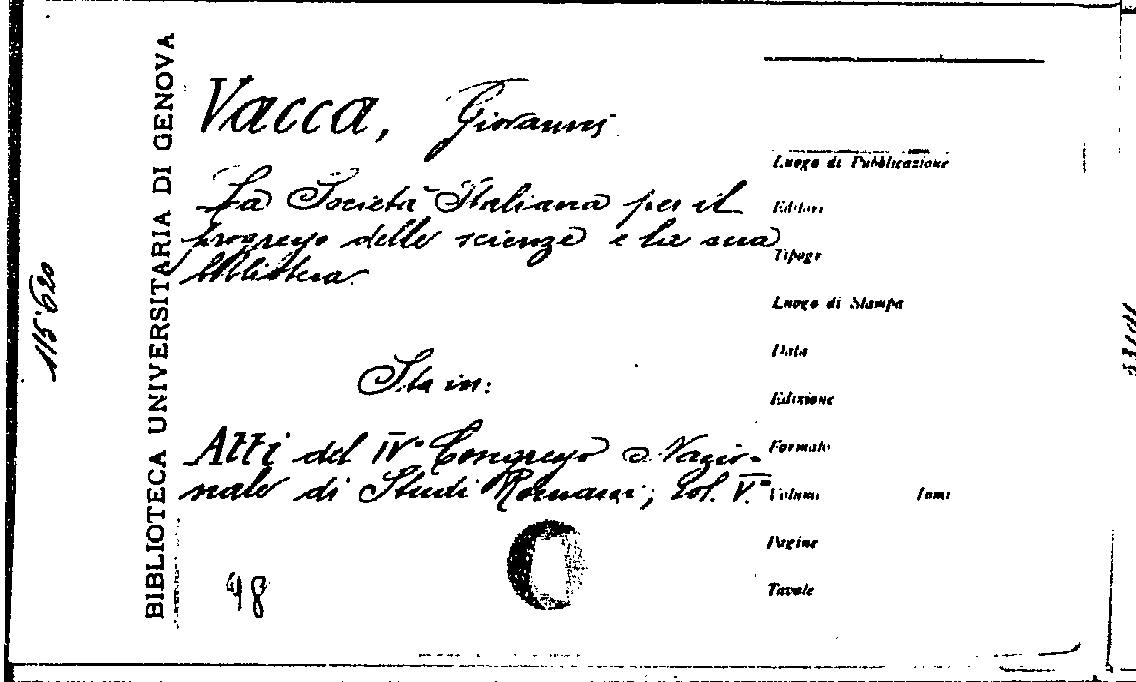 BIBLIOTECA UNIVERSITARIA DI GENOVA
115.620
Vacca, Giovanni
La Società Italiana per il
progresso delle scienze e la sua
biblioteca.
Sta in:
Atti del IV° Congresso Nazio-
nale di Studi Romani; Vol. V.°
98
Luogo di Pubblicazione
Editore
Tipogr
Luogo di Stampa
Data
Edizione
Formato
Volumi Tomi
Pagine
Tavole